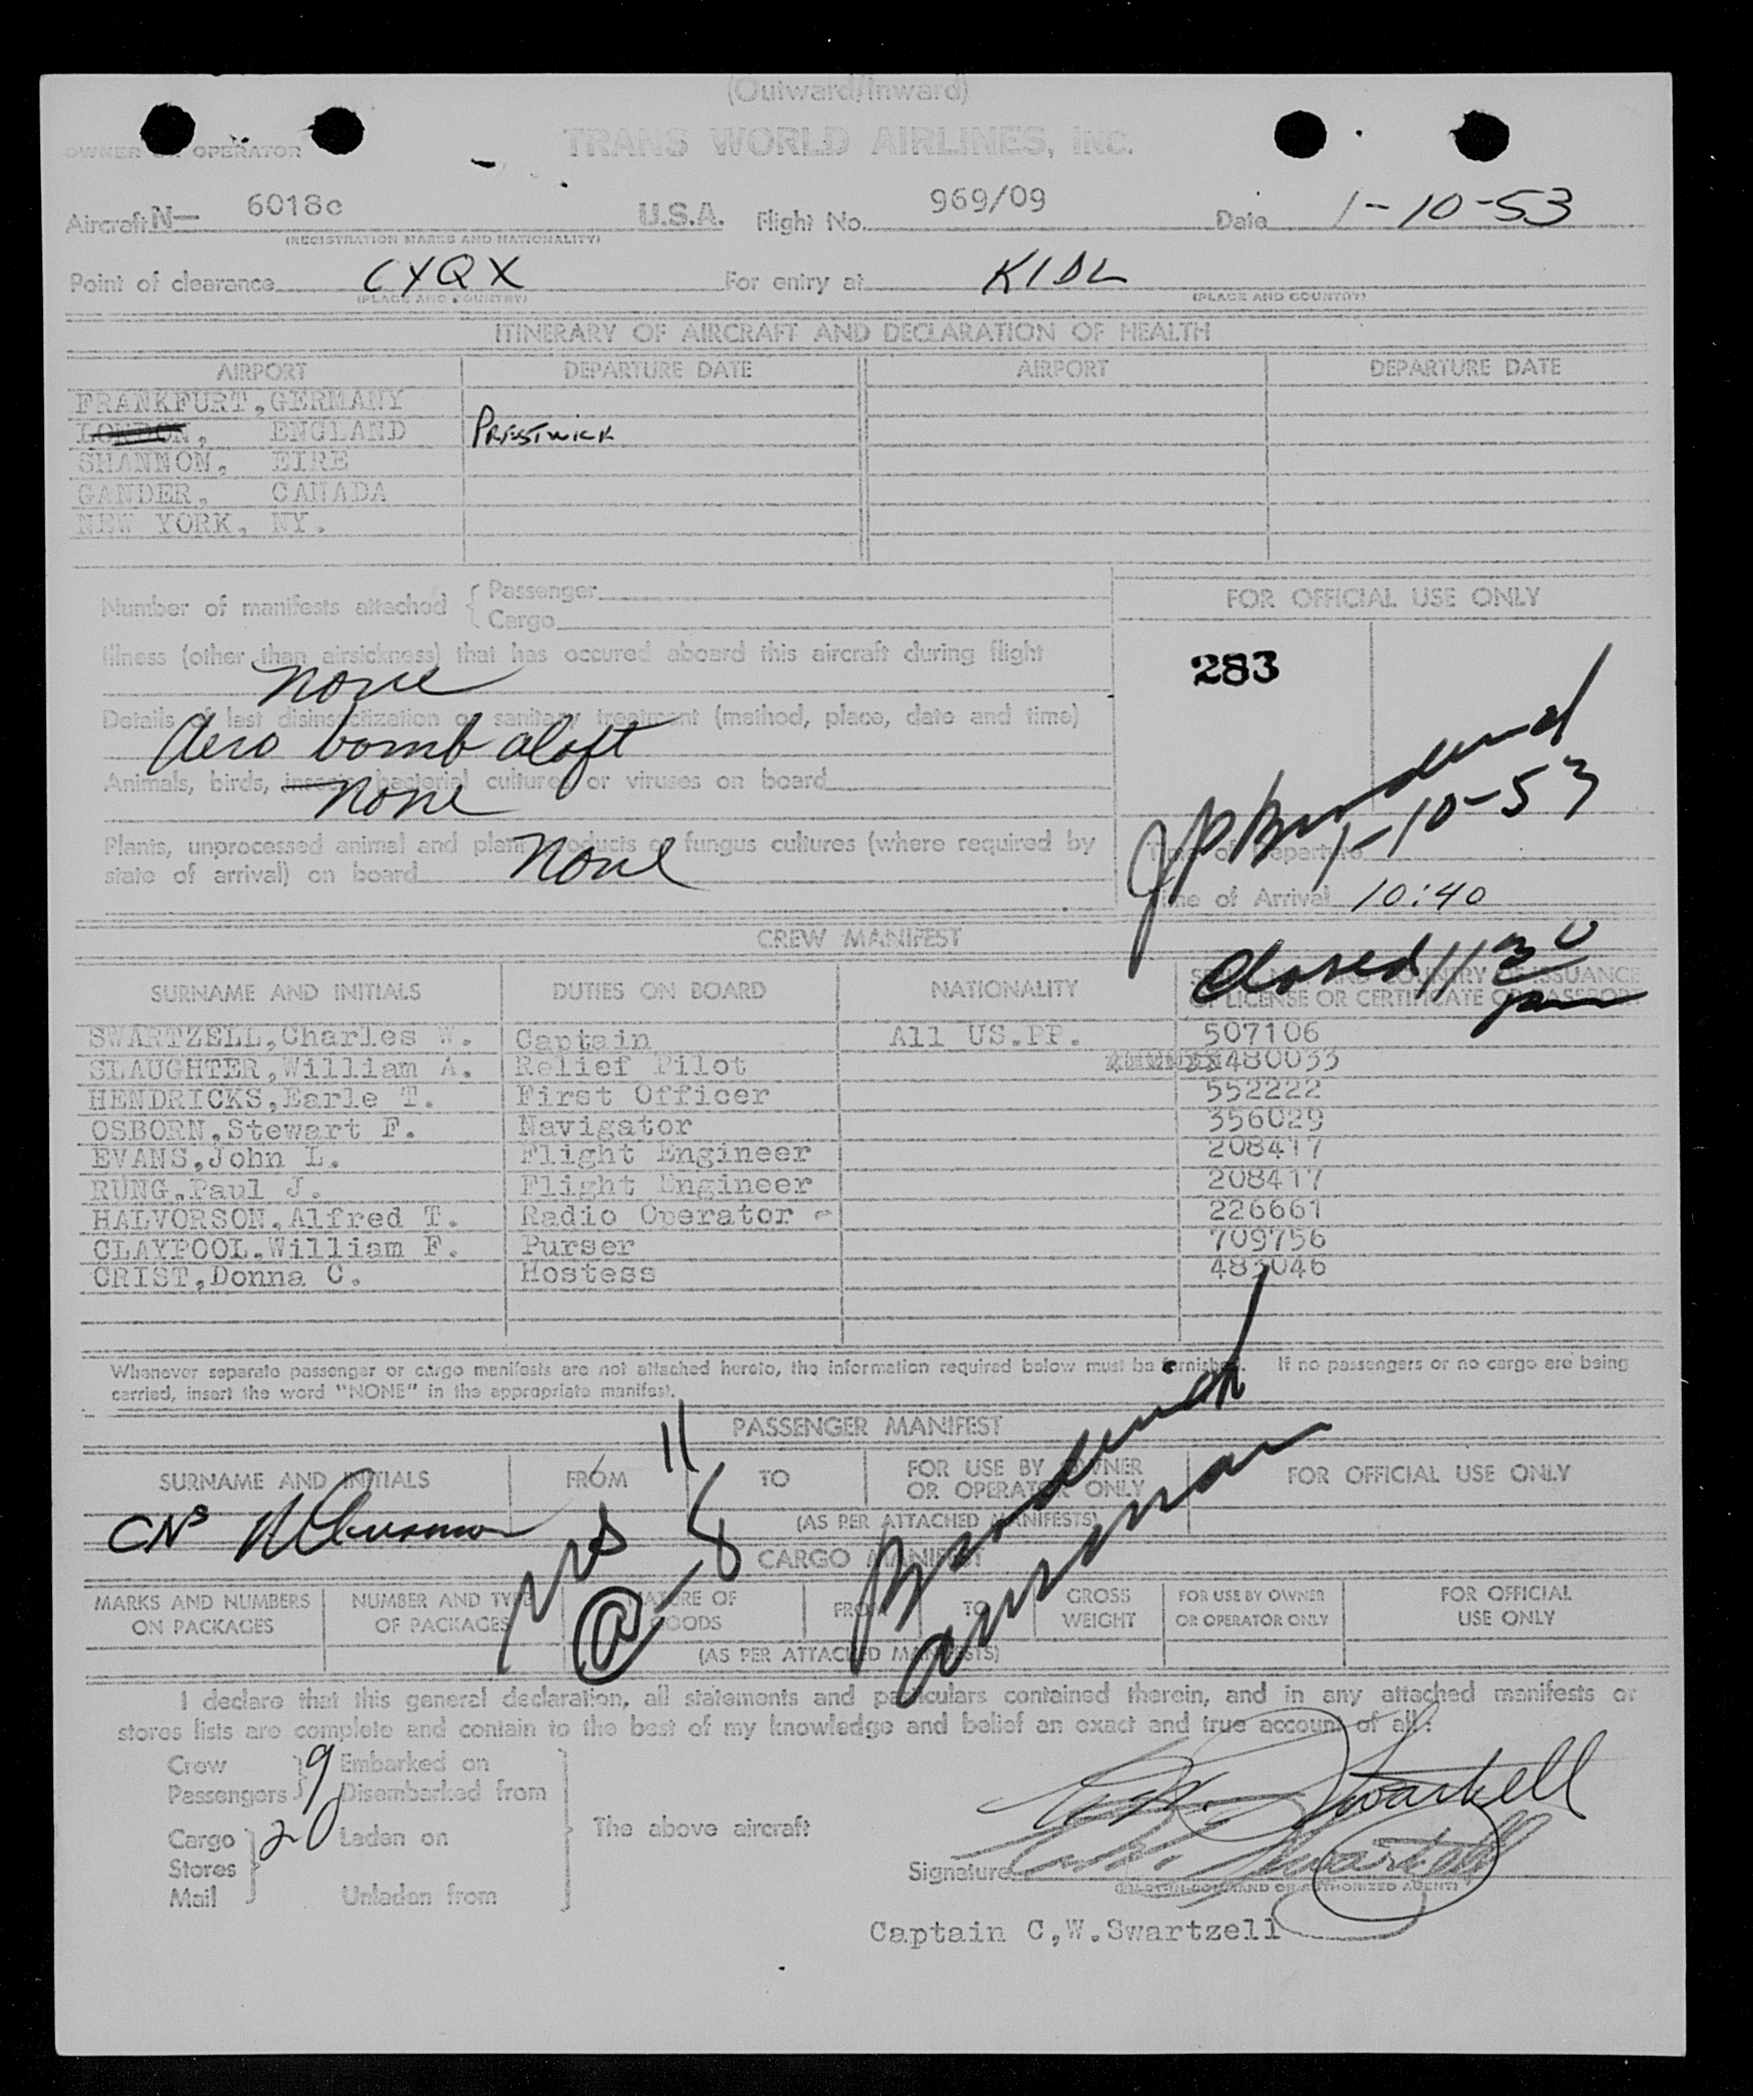 (Outward/Inward)
OWNER OR OPERATOR TRANS WORLD AIRLINES, INC.
Aircraft N- 6018c U.S.A. Flight No. 969/09 Date 1-10-53
(REGISTRATION MARKS AND NATIONALITY)
Point of clearance CYQX For entry at KIDL
(PLACE AND COUNTRY) (PLACE AND COUNTRY)
ITINERARY OF AIRCRAFT AND DECLARATION OF HEALTH
AIRPORT DEPARTURE DATE AIRPORT DEPARTURE DATE
FRANKFURT, GERMANY
LONDON, ENGLAND PRESTWICK
SHANNON, EIRE
GANDER, CANADA
NEW YORK, NY.
Number of manifests attached { Passenger
Cargo
FOR OFFICIAL USE ONLY
Illness (other than airsickness) that has occured aboard this aircraft during flight
none
283
Details of last disinsectization or sanitary treatment (method, place, date and time)
Aero bomb aloft
Animals, birds, insects, bacterial cultures or viruses on board
none
1-10-53
Plants, unprocessed animal and plant products or fungus cultures (where required by
state of arrival) on board none
Time of Departure
Time of Arrival 10:40
CREW MANIFEST
Closed 11 30
SURNAME AND INITIALS DUTIES ON BOARD NATIONALITY SERIAL NO. AND COUNTRY OF ISSUANCE
OF LICENSE OR CERTIFICATE OR PASSPORT
SWARTZELL,Charles W. Captain All US.PP. 507106
SLAUGHTER,William A. Relief Pilot 480033
HENDRICKS,Earle T. First Officer 552222
OSBORN,Stewart F. Navigator 356029
EVANS,John L. Flight Engineer 208417
RUNG,Paul J. Flight Engineer 208417
HALVORSON,Alfred T. Radio Operator 226661
CLAYPOOL,William F. Purser 709756
CRIST,Donna C. Hostess 483046
Whenever separate passenger or cargo manifests are not attached hereto, the information required below must be furnished. If no passengers or no cargo are being
carried, insert the word "NONE" in the appropriate manifest.
PASSENGER MANIFEST
SURNAME AND INITIALS FROM TO FOR USE BY OWNER
OR OPERATOR ONLY FOR OFFICIAL USE ONLY
(AS PER ATTACHED MANIFESTS)
CARGO MANIFEST
MARKS AND NUMBERS
ON PACKAGES NUMBER AND TYPE
OF PACKAGES NATURE OF
GOODS FROM TO GROSS
WEIGHT FOR USE BY OWNER
OR OPERATOR ONLY FOR OFFICIAL
USE ONLY
(AS PER ATTACHED MANIFESTS)
I declare that this general declaration, all statements and particulars contained therein, and in any attached manifests or
stores lists are complete and contain to the best of my knowledge and belief an exact and true account of all:
Crew 9 Embarked on
Passengers Disembarked from
Cargo 20 Laden on The above aircraft
Stores
Mail Unladen from
C.W. Swartzell
Signature C.W. Swartzell
(IN COMMAND OR AUTHORIZED AGENT)
Captain C,W.Swartzell